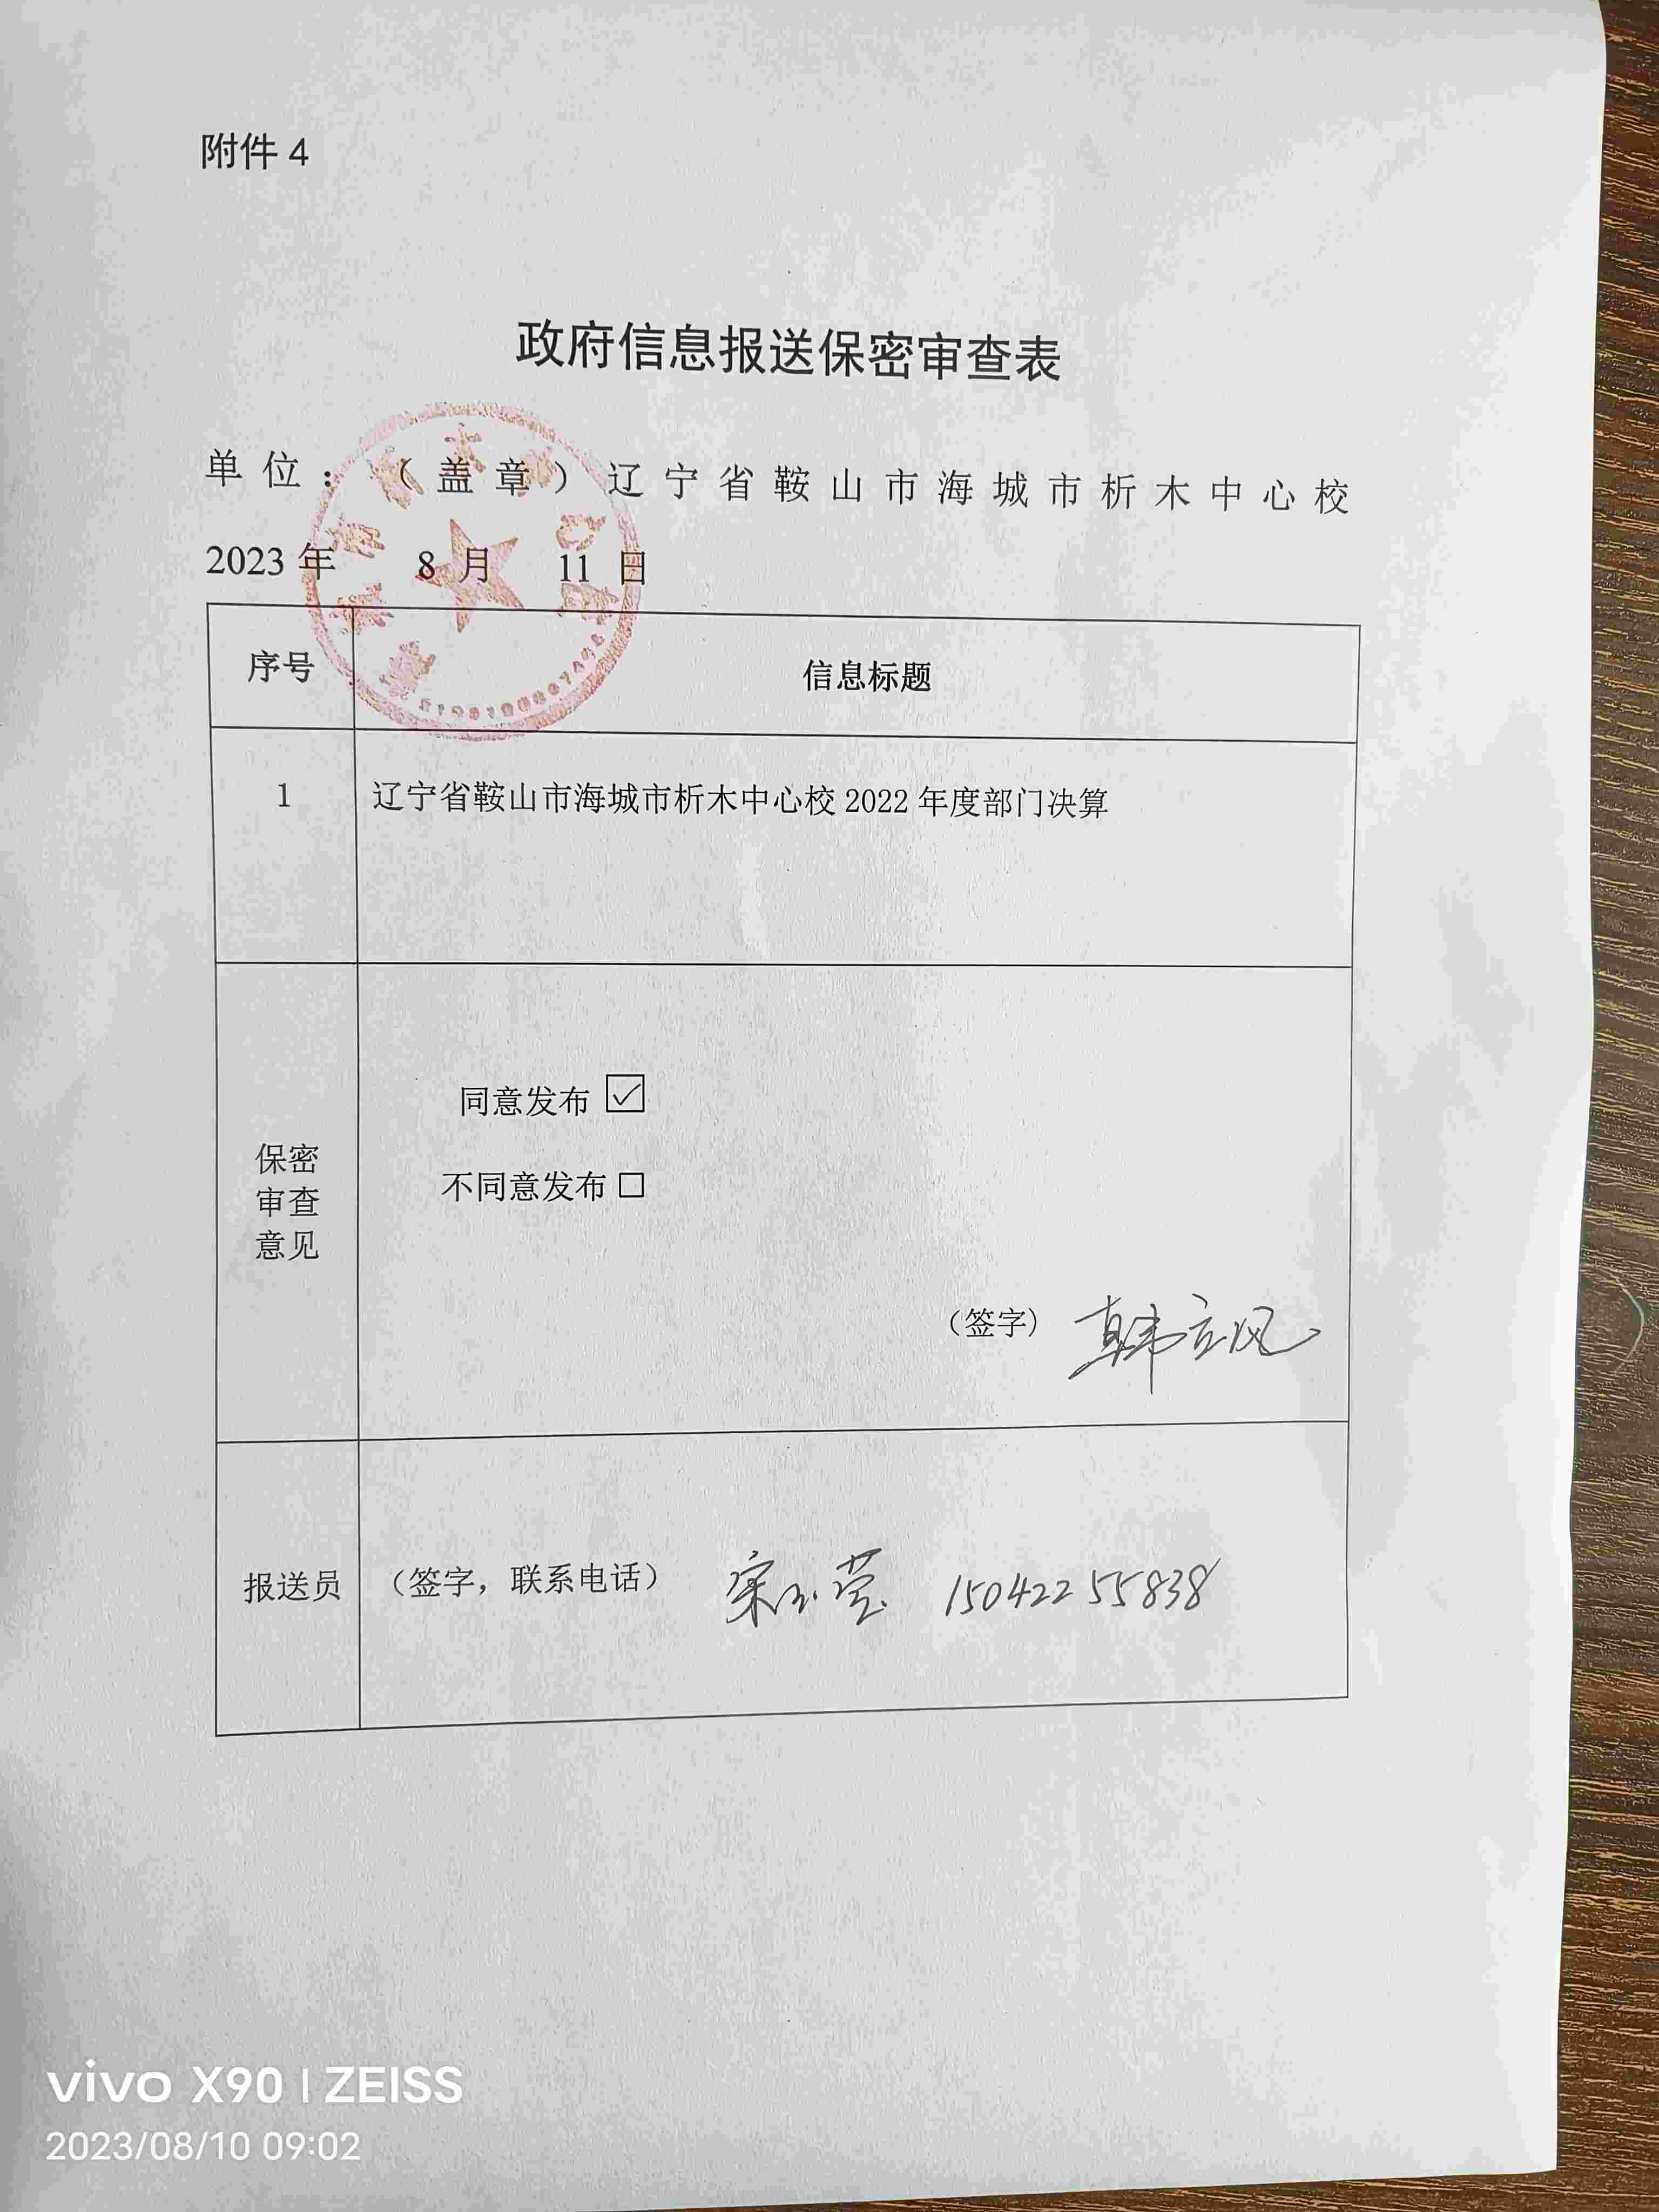 附件 4
政府信息报送保密审查表
单位：（盖章）辽宁省鞍山市海城市析木中心校
2023 年 8 月 11 日
序号 信息标题
1 辽宁省鞍山市海城市析木中心校 2022 年度部门决算
保密
审查
意见
同意发布 ☑
不同意发布 □
（签字） 韩立风
报送员 （签字，联系电话） 宋玉莹 15042255838
vivo X90 | ZEISS
2023/08/10 09:02